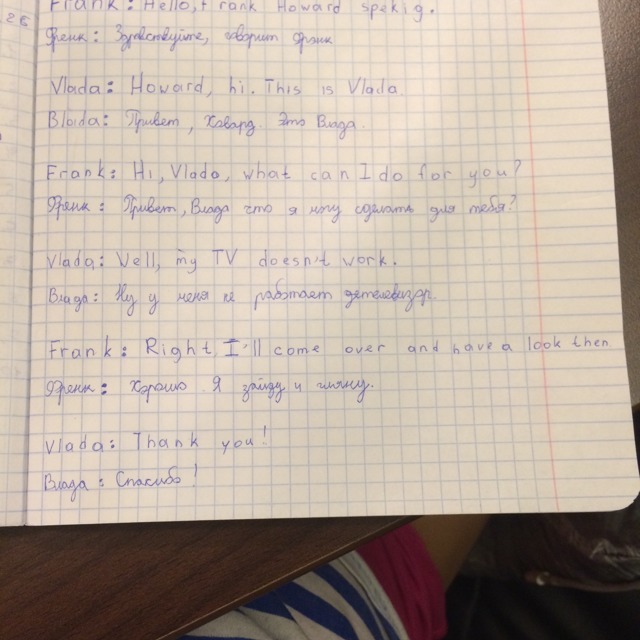 Frank: Hello, Frank Howard spekig.
Френк: Здравствуйте, говорит Фрэнк
Vlada: Howard, hi. This is Vlada
Влада: Привет, Ховард. Это Влада.
Frank: Hi, Vlada, what can I do for you?
Френк: Привет, Влада что я могу сделать для тебя?
Vlada: Well, my TV doesn't work.
Влада: Ну у меня не работает телевизор.
Frank: Right, I'll come over and have a look then
Френк: Хорошо. Я зайду и гляну.
Vlada: Thank you!
Влада: Спасибо!